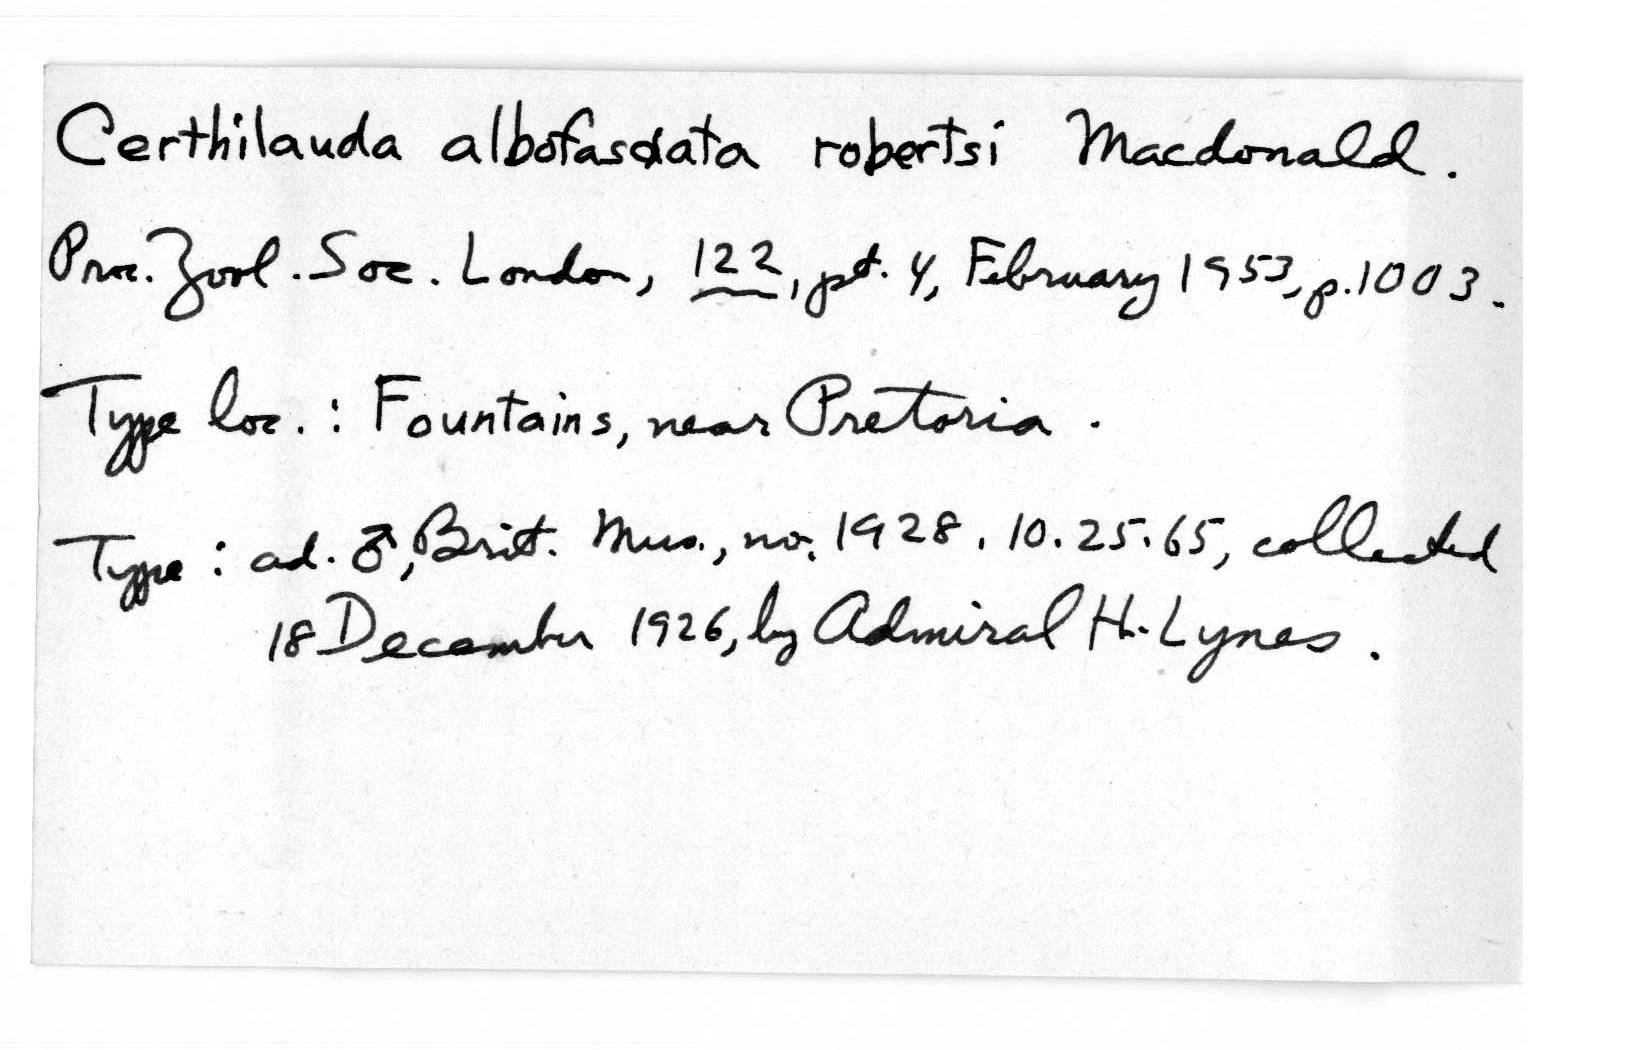 Certhilauda albofasciata robertsi Macdonald.
Proc. Zool. Soc. London, 122, pt. 4, February 1953, p. 1003.
Type loc. : Fountains, near Pretoria.
Type : ad. ♂, Brit. Mus., no. 1928.10.25.65, collected
18 December 1926, by Admiral H. Lynes.